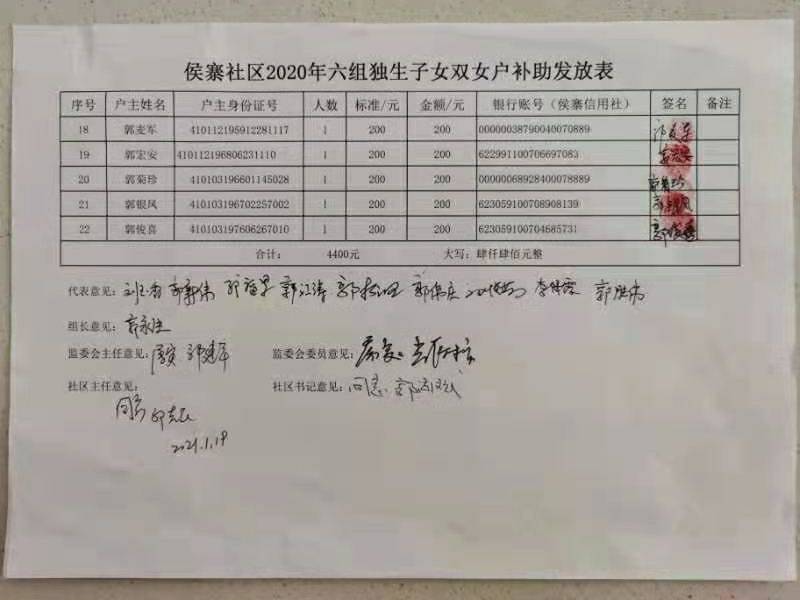 侯寨社区2020年六组独生子女双女户补助发放表
序号 户主姓名 户主身份证号 人数 标准/元 金额/元 银行账号（侯寨信用社） 签名 备注
18 郭麦军 410112195912281117 1 200 200 00000038790040070889
19 郭宏安 410112196806231110 1 200 200 622991100706697083
20 郭菊珍 410103196601145028 1 200 200 00000068928400078889 郭菊珍
21 郭银凤 410103196702257002 1 200 200 623059100708908139 郭银凤
22 郭俊喜 410103197606267010 1 200 200 623059100704685731 郭俊喜
合计： 4400元 大写：肆仟肆佰元整
代表意见：
组长意见：
监委会主任意见： 监委会委员意见：
社区主任意见： 社区书记意见：同意
同意
2021.1.19